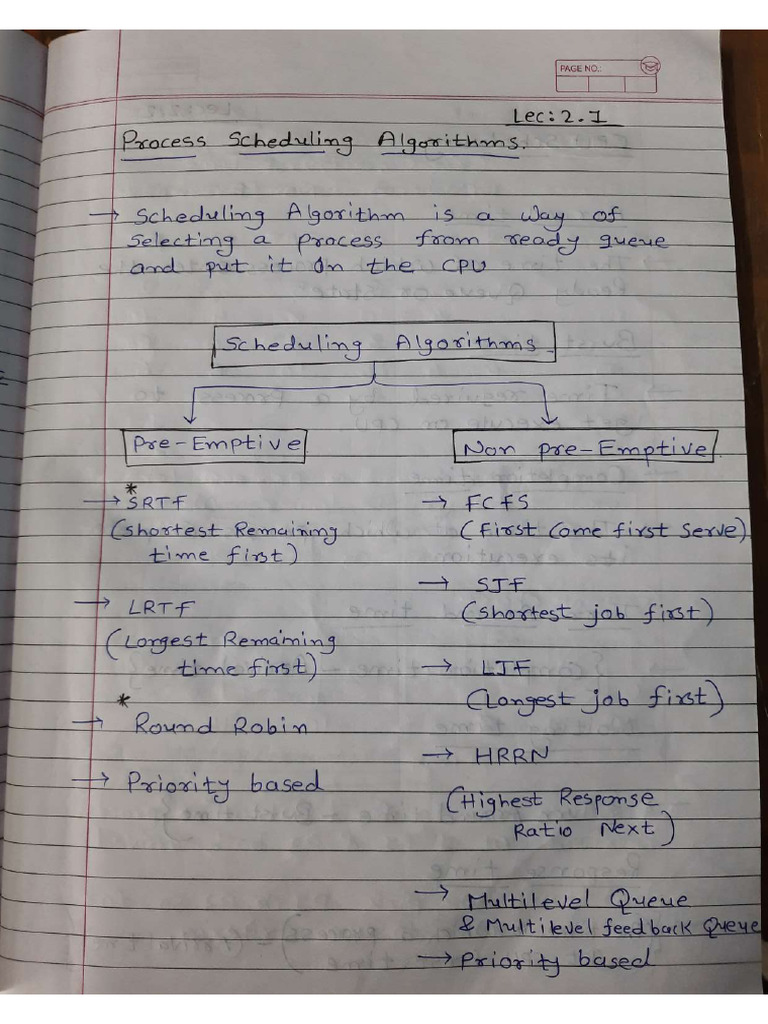 PAGE NO.:
Lec: 2.1
Process Scheduling Algorithms.
→ Scheduling Algorithm is a way of
Selecting a process from ready queue
and put it on the CPU
Scheduling Algorithms
Pre-Emptive
* → SRTF
(Shortest Remaining
time first)
→ LRTF
(Largest Remaining
time first)
* → Round Robin
→ Priority based
Non pre-Emptive
→ FCFS
(First Come first Serve)
→ SJF
(Shortest job first)
→ LJF
(Longest job first)
→ HRRN
(Highest Response
Ratio Next)
→ Multilevel Queue
& Multilevel feedback Queue
→ Priority based